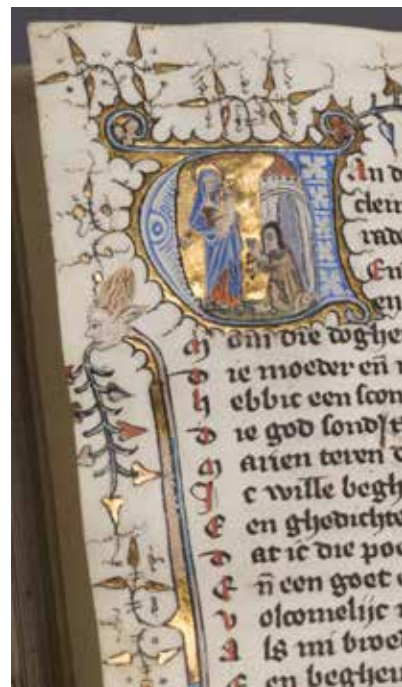 VAn d
clein
rade
En
en
M om die dogh
D ie moeder en̄
H ebbic een scon
D ie god sond
M arien teren d
I c wille begh
E en ghedichte
D at ic die poe
E n̄ een goet e
V olcomelijc
A ls mi broed
E en begheu